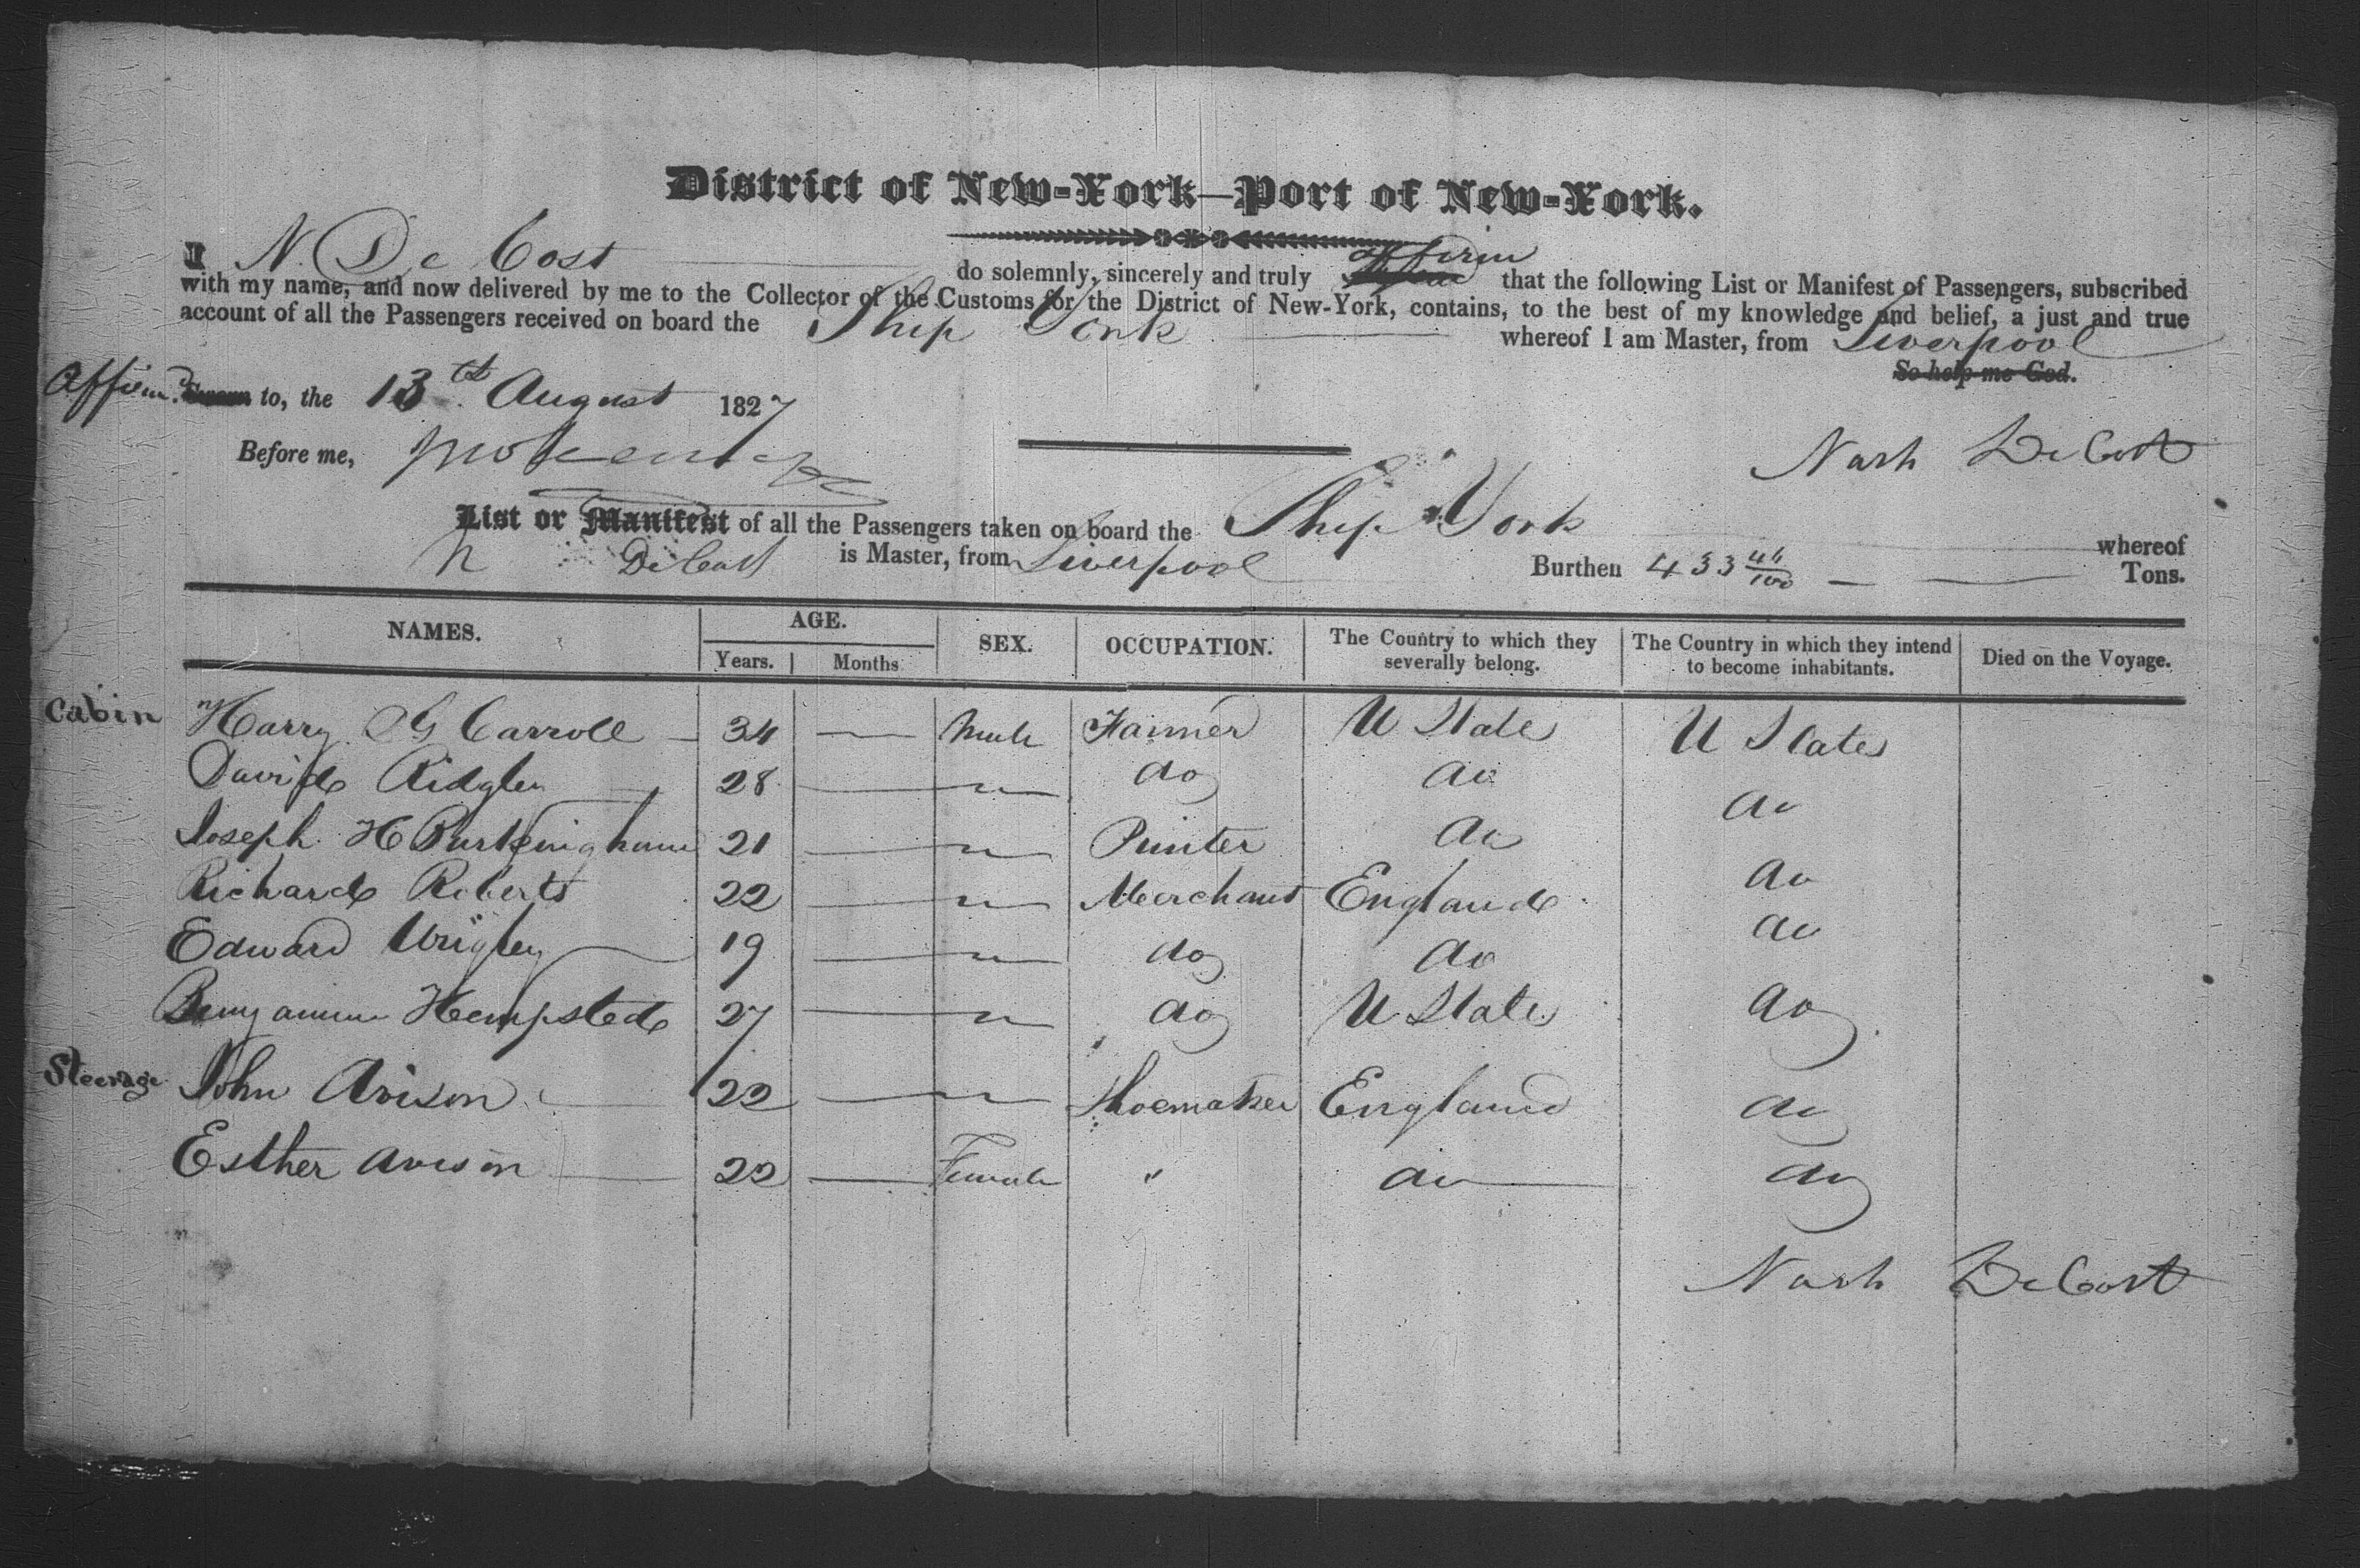 District of New-York—Port of New-York.
I N. De Cost do solemnly, sincerely and truly affirm that the following List or Manifest of Passengers, subscribed
with my name, and now delivered by me to the Collector of the Customs for the District of New-York, contains, to the best of my knowledge and belief, a just and true
account of all the Passengers received on board the Ship York whereof I am Master, from Liverpool
So help me God.
Affirmd. Sworn to, the 13th August 1827
Before me,
Nash DeCost
List or Manifest of all the Passengers taken on board the Ship York whereof
N DeCost is Master, from Liverpool Burthen 433 44/100 Tons.
NAMES. AGE. SEX. OCCUPATION. The Country to which they severally belong. The Country in which they intend to become inhabitants. Died on the Voyage.
Years. Months
Cabin Harry G Carroll 34 — Male Farmer U State U States
David Ridgley 28 — " do do do
Joseph H Buckingham 21 — " Printer do do
Richard Roberts 22 — " Merchant England do
Edward Wrigley 19 — " do do do
Benjamin Hempsted 27 — " do U States do
Steerage John Avison 22 — " Shoemaker England do
Esther Avison 22 — Female " do do
Nash DeCost